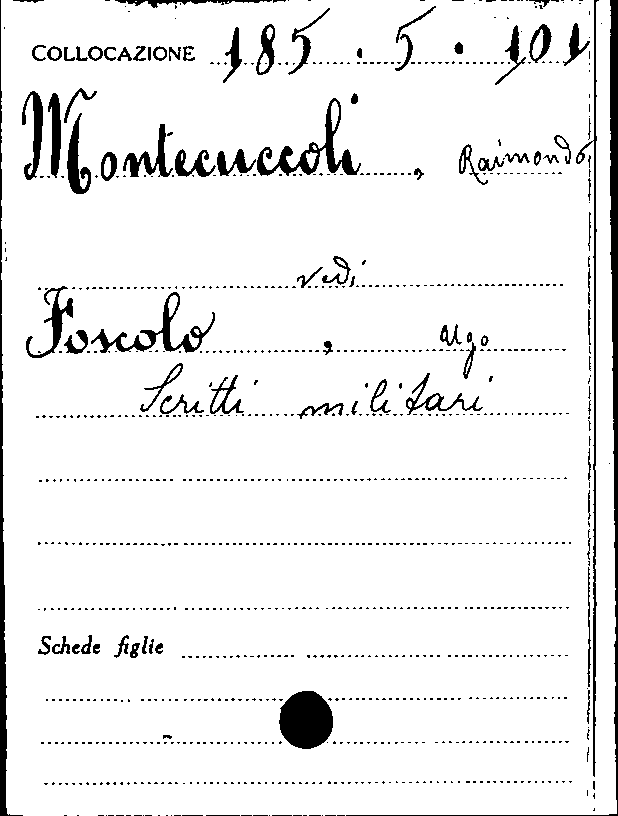 COLLOCAZIONE 185.5.101
Montecuccoli, Raimondo
vedi
Foscolo, Ugo
Scritti militari
Schede figlie